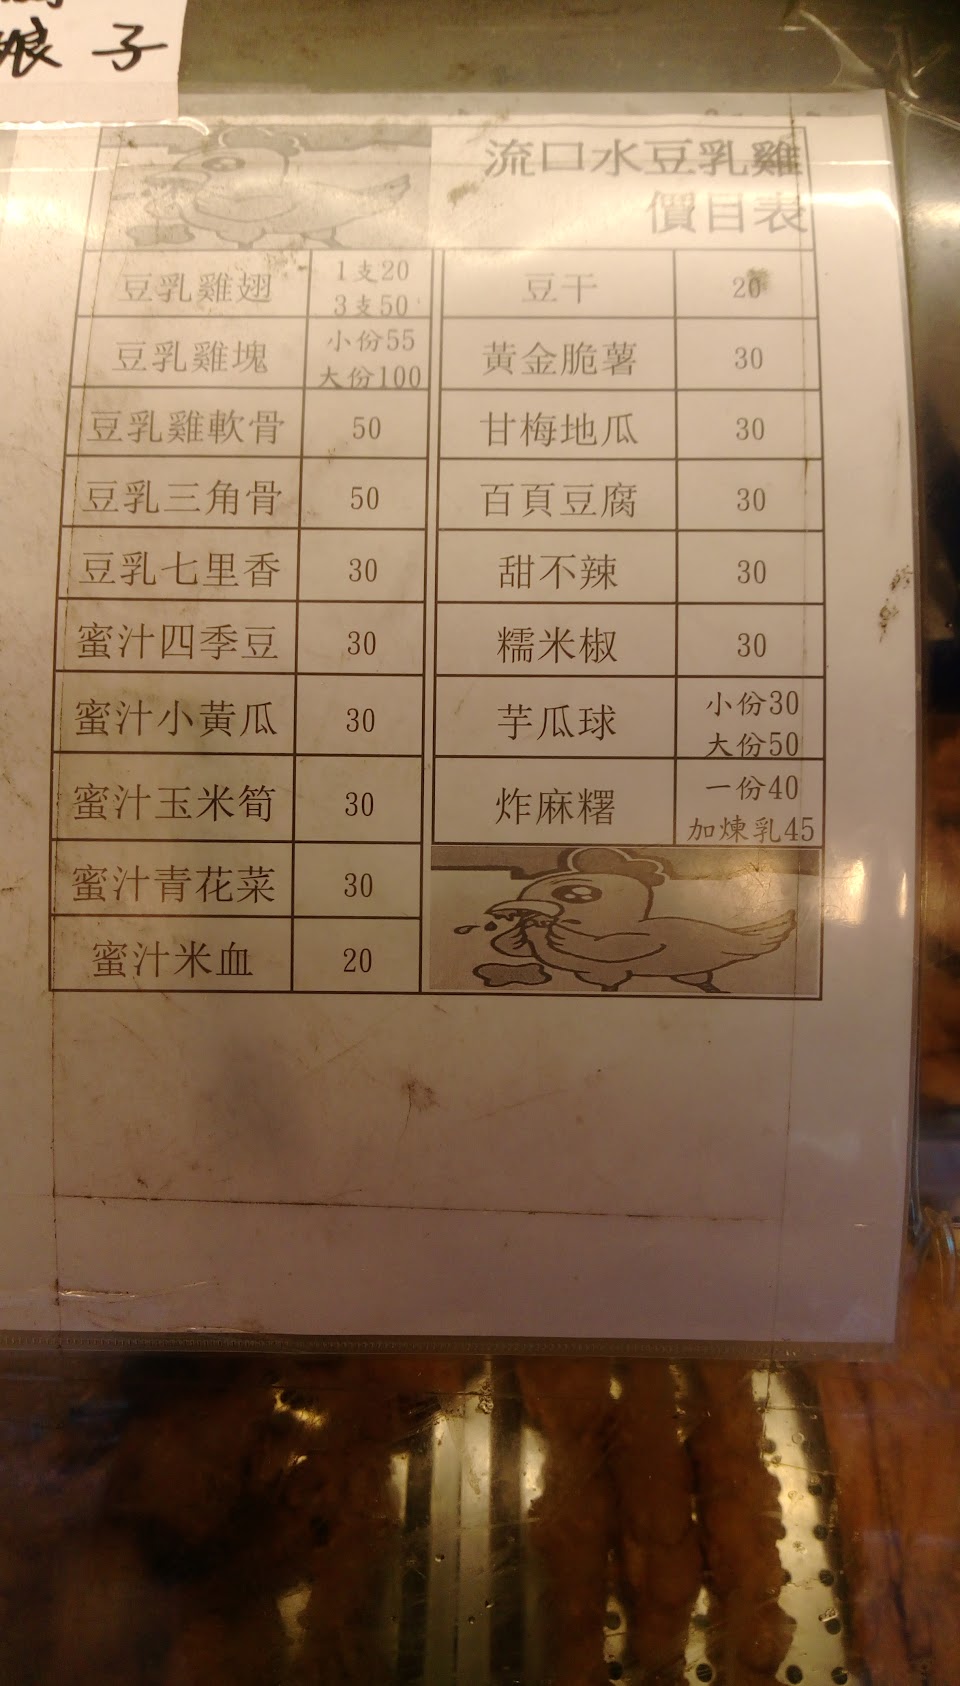 娘子
流口水豆乳雞
價目表
豆乳雞翅 1支20 3支50
豆乳雞塊 小份55 大份100
豆乳雞軟骨 50
豆乳三角骨 50
豆乳七里香 30
蜜汁四季豆 30
蜜汁小黃瓜 30
蜜汁玉米筍 30
蜜汁青花菜 30
蜜汁米血 20
豆干 20
黃金脆薯 30
甘梅地瓜 30
百頁豆腐 30
甜不辣 30
糯米椒 30
芋瓜球 小份30 大份50
炸麻糬 一份40 加煉乳45